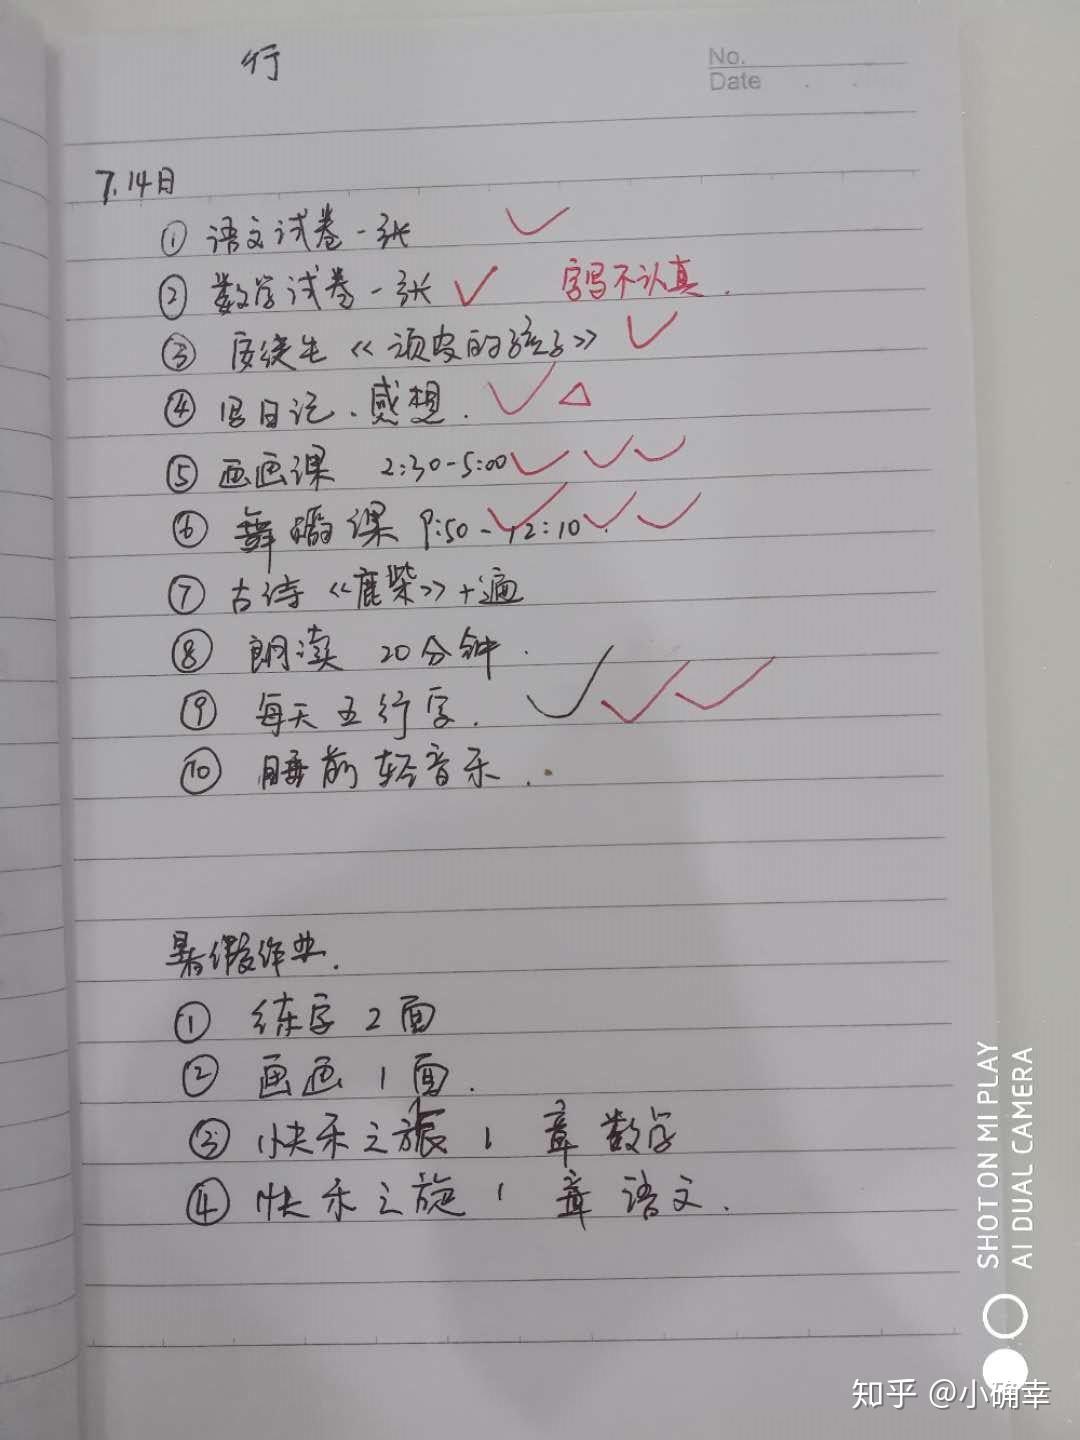 行
No.
Date
7.14日
① 语文试卷一张
② 数学试卷一张 字写不认真.
③ 《顽皮的孩子》
④ 写日记、感想.
⑤ 画画课 2:30-5:00
⑥ 舞蹈课 9:50-12:10.
⑦ 古诗《鹿柴》十遍
⑧ 朗读 20分钟.
⑨ 每天五行字.
⑩ 睡前轻音乐.
暑假作业.
① 练字2面
② 画画1面.
③ 快乐之旅1章数学
④ 快乐之旅1章语文.
SHOT ON MI PLAY
AI DUAL CAMERA
知乎 @小确幸